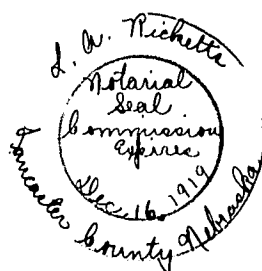 L. A. Ricketts
Notarial
Seal
Commission
Expires
Dec. 16, 1919
Lancaster County Nebraska